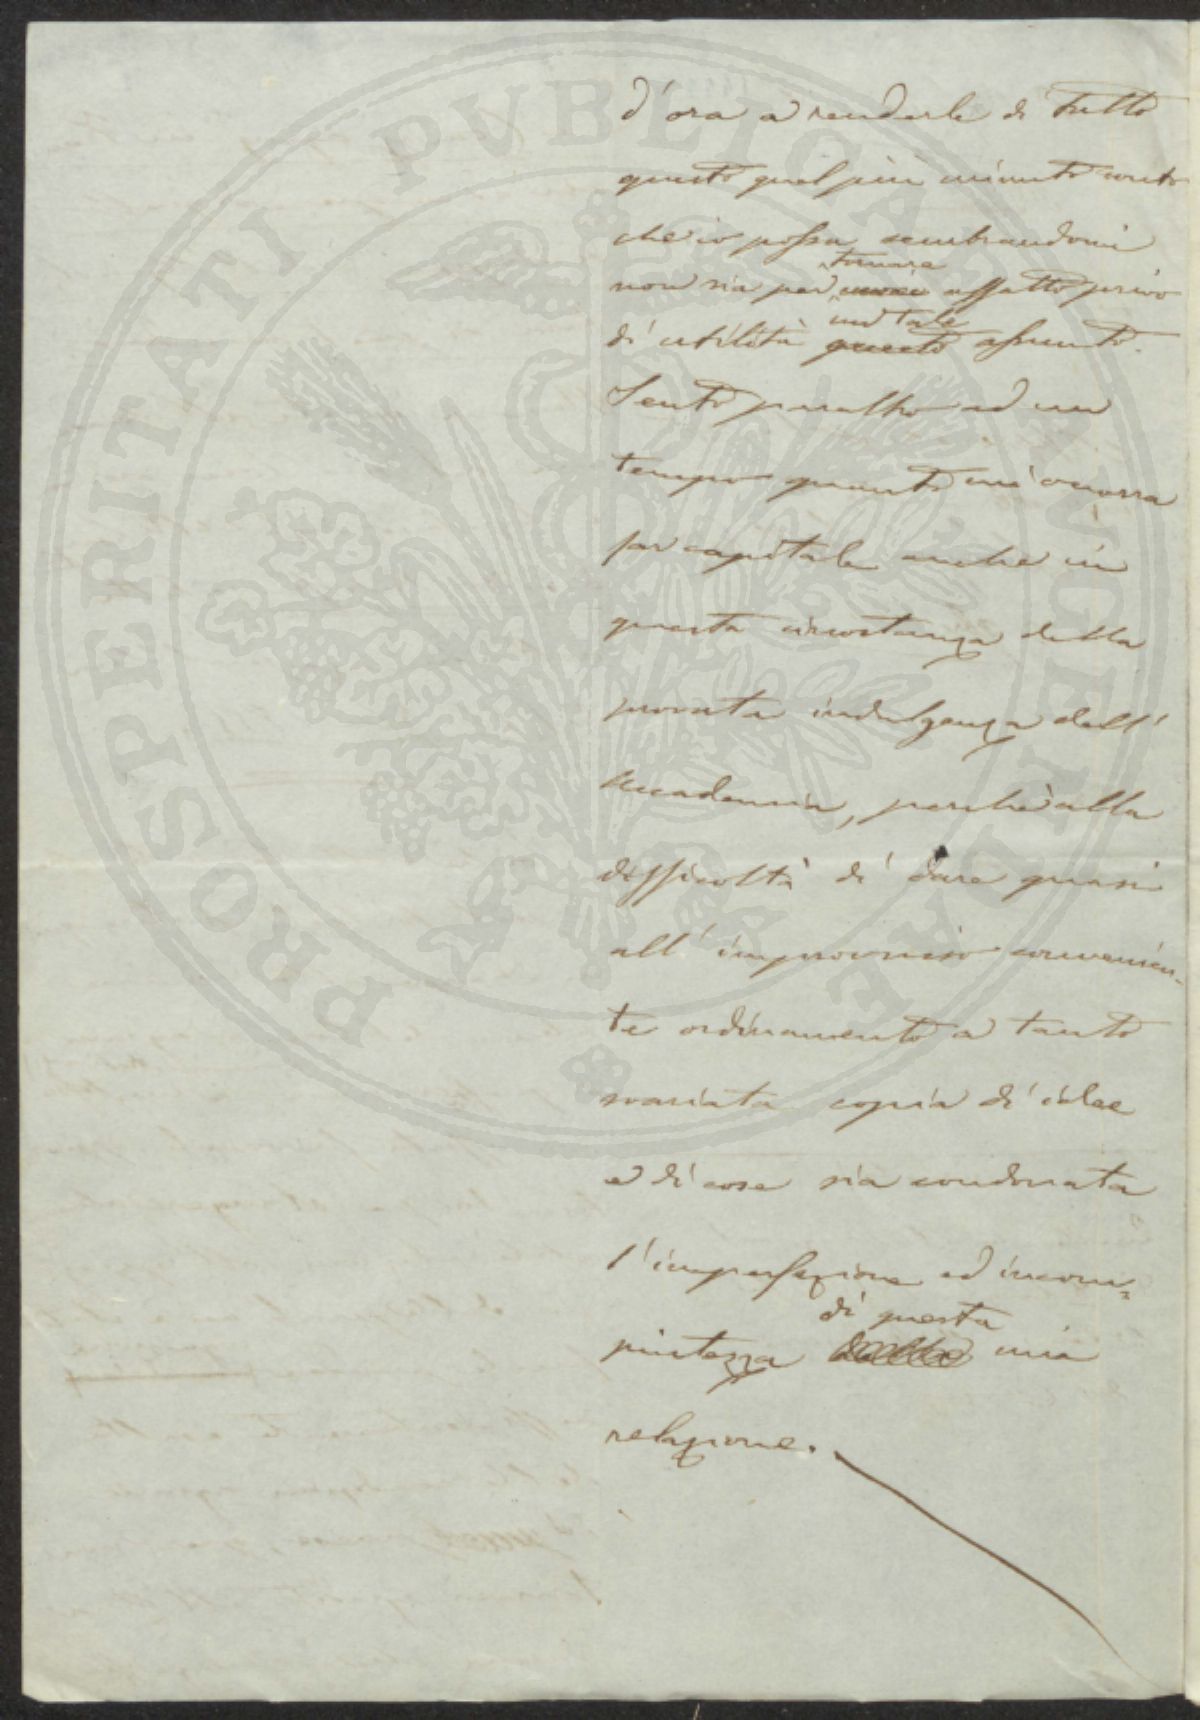 d'ora a renderle di tutto
questo quel più minuto conto
che io possa, sembrandomi
tornare
non sia per affatto privo
un tale
di utilità questo assunto.
Sento peraltro ad un
tempo quanto mi occorra
far capitale anche in
questa circostanza della
provata indulgenza dell'
Accademia, perchè alla
difficoltà di dare quasi
all'improvviso convenien-
te ordinamento a tanto
svariata copia di idee
e di cose sia condonata
l'imperfezione ed incom=
di questa
piutezza mia
relazione.
PROSPERITATI PVBLICAE AVGENDAE